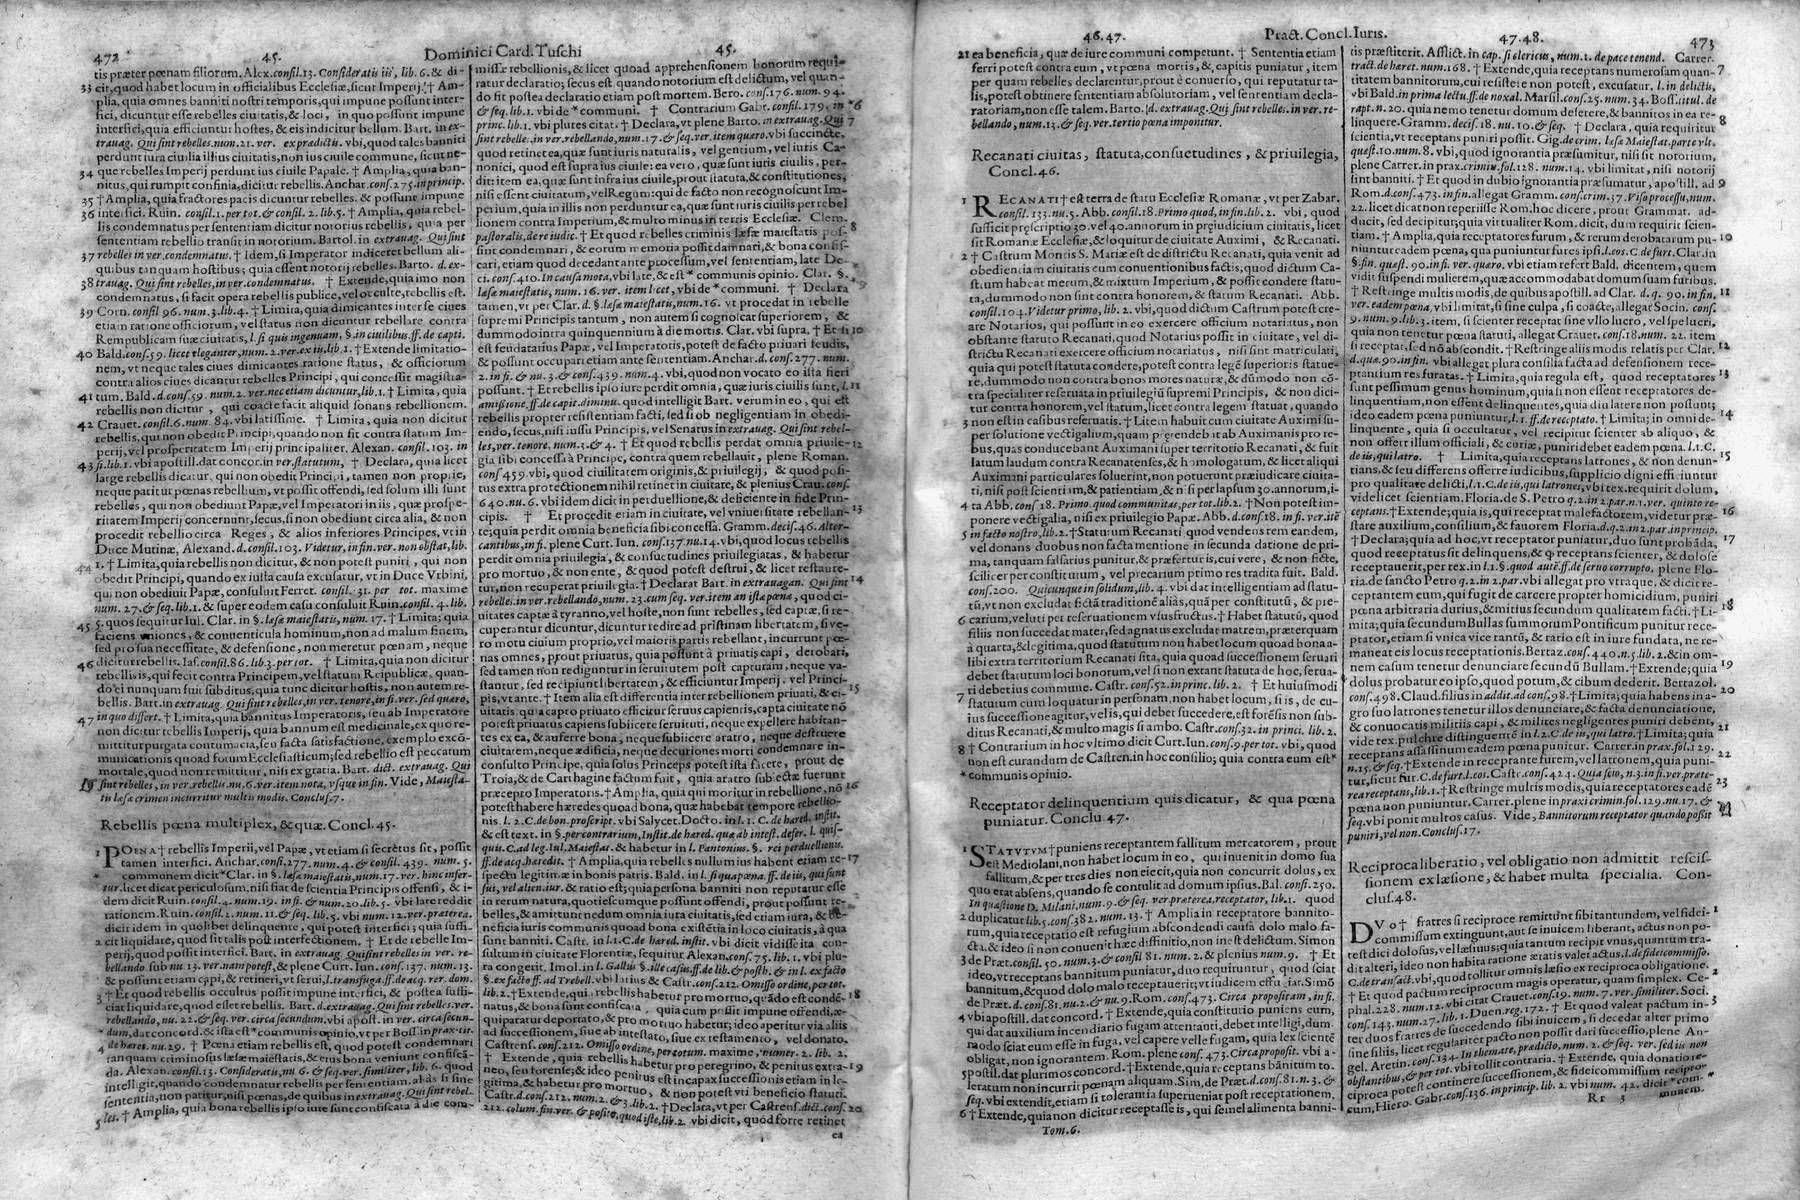 472 45. Dominici Card. Tuschi 45.
tis præter pœnam filiorum. Alex. consil. 13. Consideratis iis, lib. 6. & di-
33 cit, quod habet locum in officialibus Ecclesiæ, sicut Imperij. † Am-
plia, quia omnes banniti nostri temporis, qui impune possunt inter-
fici, dicuntur esse rebelles ciuitatis, & loci, in quo possunt impune
interfici, quia efficiuntur hostes, & eis indicitur bellum. Bart. in ex-
trauag. Qui sint rebelles. num. 21. ver. ex prædictis. vbi, quod tales banniti
perdunt iura ciuilia illius ciuitatis, non ius ciuile commune, sicut ne-
34 que rebelles Imperij perdunt ius ciuile Papale. † Amplia, quia ban-
nitus, qui rumpit confinia, dicitur rebellis. Anchar. cons. 275. in princip.
35 † Amplia, quia fractores pacis dicuntur rebelles. & possunt impune
36 interfici. Ruin. consil. 1. per tot. & consil. 2. lib. 5. † Amplia, quia rebel-
lis condemnatus per sententiam dicitur notorius rebellis, quia per
sententiam rebellio transit in notorium. Bartol. in extrauag. Qui sint
37 rebelles in ver. condemnatus. † Idem, si Imperator indiceret bellum ali-
quibus tanquam hostibus; quia essent notorij rebelles. Barto. d. ex-
38 trauag. Qui sint rebelles, in ver. condemnatus. † Extende, quia imo non
condemnatus, si facit opera rebellis publice, vel occulte, rebellis est.
39 Corn. consil. 96. num. 3. lib. 4. † Limita, quia dimicantes inter se ciues
etiam ratione officiorum, vel status non dicuntur rebellare contra
Rempublicam suæ ciuitatis, l. si quis ingenuam, §. in ciuilibus. ff. de capti.
40 Bald. cons. 59. licet eleganter, num. 2. ver. ex iis, lib. 1. † Extende limitatio-
nem, vt neque tales ciues dimicantes ratione status, & officiorum
contra alios ciues dicantur rebelles Principi, qui concessit magistra-
41 tum. Bald. d. cons. 59. num. 2. ver. nec etiam dicuntur, lib. 1. † Limita, quia
rebellis non dicitur, qui coacte facit aliquid sonans rebellionem.
42 Crauet. consil. 6. num. 84. vbi latissime. † Limita, quia non dicitur
rebellis, qui non obedit Principi, quando non fit contra statum Im-
perij, vel prosperitatem Imperij principaliter. Alexan. consil. 103. in
43 fi. lib. 1. vbi apostill. dat concor. in ver. statutum, † Declara, quia licet
large rebellis dicatur, qui non obedit Principi, tamen non proprie,
neque patitur pœnas rebellium, vt possit offendi, sed solum illi sunt
rebelles, qui non obediunt Papæ, vel Imperatori in iis, quæ prospe-
ritatem Imperij concernunt, secus, si non obediunt circa alia, & non
procedit rebellio circa Reges, & alios inferiores Principes, vt in
Duce Mutinæ, Alexand. d. consil. 103. Videtur, in fin. ver. non obstat, lib.
44 1. † Limita, quia rebellis non dicitur, & non potest puniri, qui non
obedit Principi, quando ex iusta causa excusatur, vt in Duce Vrbini,
qui non obediuit Papæ, consuluit Ferret. consil. 31. per tot. maxime
num. 27. & seq. lib. 1. & super eodem casu consuluit Ruin. consil. 4. lib.
45 5. quos sequitur Iul. Clar. in §. læsæ maiestatis, num. 17. † Limita; quia
faciens vniones, & conuenticula hominum, non ad malum finem,
sed pro sua necessitate, & defensione, non meretur pœnam, neque
46 dicitur rebellis. Ias. consil. 86. lib. 3. per tot. † Limita, quia non dicitur
rebellis is, qui fecit contra Principem, vel statum Reipublicæ, quan-
do ei nunquam fuit subditus, quia tunc dicitur hostis, non autem re-
bellis. Bart. in extrauag. Qui sint rebelles, in ver. tenore, in fi. ver. sed quæro,
47 in quo differt. † Limita, quia bannitus Imperatoris, seu ab Imperatore
non dicitur rebellis Imperij, quia bannum est medicinale, ex quo re-
mittitur purgata contumacia, seu facta satisfactione, exemplo excõ-
municationis quoad forum Ecclesiasticum; sed rebellio est peccatum
mortale, quod non remittitur, nisi ex gratia. Bart. dict. extrauag. Qui
sint rebelles, in ver. rebellis. nu. 6. ver. item nota, vsque in fin. Vide, Maiesta-
tis læsæ crimen incurritur multis modis. Conclus. 7.
Rebellis pœna multiplex, & quæ. Concl. 45.
1 POENA † rebellis Imperii, vel Papæ, vt etiam si secretus sit, possit
tamen interfici. Anchar. consi. 277. num. 4. & consil. 439. num. 5.
* communem dicit * Clar. in §. læsæ maiestatis, num. 17. ver. hinc infer-
tur. licet dicat periculosum, nisi fiat de scientia Principis offensi, & i-
dem dicit Ruin. consil. 4. num. 19. in fi. & num. 20. lib. 5. vbi late reddit
rationem. Ruin. consil. 2. num. 11. & seq. lib. 5. vbi num. 12. ver. præterea.
dicit idem in quolibet delinquente, qui potest interfici; quia suffi-
2 cit liquidare, quod sit talis post interfectionem. † Et de rebelle Im-
perij, quod possit interfici. Bart. in extrauag. Qui sint rebelles in ver. re-
bellando. sub nu. 13. ver. nam potest, & plene Curt. Iun. cons. 137. num. 13.
& possunt etiam capi, & retineri, vt serui, l. transfuga. ff. de acq. rer. dom.
3 † Et quod rebelles occultus possit impune interfici, & postea suffi-
ciat liquidare, quod esset rebellis. Bart. d. extrauag. Qui sint rebelles. ver.
rebellando, nu. 22. & seq. ver. circa secundum. vbi apost. in ver. circa secun-
* dum, dat concord. & ista est * communis opinio, vt per Boss. in prax. tit.
4 de hæret. nu. 29. † Pœna etiam rebellis est, quod potest condemnari
tanquam criminosus læsæ maiestatis, & eius bona veniunt confiscã-
da. Alexan. consil. 13. Consideratis, nu. 6. & seq. ver. similiter, lib. 6. quod
intelligit, quando condemnatur rebellis per sententiam. aliàs si sine
sententia, non patitur, nisi pœnas, de quibus in extrauag. Qui sint rebel-
5 les. † Amplia, quia bona rebellis ipso iure sunt confiscata à die com-
missæ rebellionis, & licet quoad apprehensionem bonorum requi-
ratur declaratio; secus est quando notorium est delictum, vel quan-
do fit postea declaratio etiam post mortem. Bero. cons. 176. num. 94.
& seq. lib. 1. vbi de * communi. † Contrarium Gabr. consil. 179. in *6
princ. lib. 1. vbi plures citat. † Declara, vt plene Barto. in extrauag. Qui 7
sint rebelles: in ver. rebellando, num. 17. & seq. ver. item quæro. vbi succincte,
quod retinet ea, quæ sunt iuris naturalis, vel gentium, vel iuris Ca-
nonici, quod est supra ius ciuile: ea vero, quæ sunt iuris ciuilis, per-
dit: item ea, quæ sunt infra ius ciuile, prout statuta, & constitutiones,
nisi essent ciuitatum, vel Regum: qui de facto non recognoscunt Im-
perium, quia in illis non perduntur ea, quæ sunt iuris ciuilis per rebel
lionem contra Imperium, & multo minus in terris Ecclesiæ. Clem.
pastoralis, de re iudic. † Et quod rebelles criminis læsæ maiestatis pos- 8
sint condemnari, & eorum memoria possit damnari, & bona confis-
cari, etiam quod decedant ante processum, vel sententiam, late De-
ci. cons. 410. In causa mota, vbi late, & est * communis opinio. Clar. §. *
læsæ maiestatis, num. 16. ver. item licet, vbi de * communi. † Declara 9
tamen, vt per Clar. d. §. læsæ maiestatis, num. 16. vt procedat in rebelle
supremi Principis tantum, non autem si cognoscat superiorem, &
dummodo intra quinquennium à die mortis. Clar. vbi supra. † Et si 10
est feudatarius Papæ, vel Imperatoris, potest de facto priuari feudis,
& possunt occupari etiam ante sententiam. Anchar. d. cons. 277. num.
2. in fi. & nu. 3. & cons. 439. num. 4. vbi, quod non vocato eo ista fieri
possunt. † Et rebellis ipso iure perdit omnia, quæ iuris ciuilis sunt, l. 11
amissione. ff. de capit. diminu. quod intelligit Bart. verum in eo, qui est
rebellis propter resistentiam facti, sed si ob negligentiam in obedi-
endo, secus, nisi iussu Principis, vel Senatus in extrauag. Qui sint rebel-
les, ver. tenore, num. 3. & 4. † Et quod rebellis perdat omnia priuile- 12
gia sibi concessa à Principe, contra quem rebellauit, plene Roman.
cons. 459. vbi, quod ciuilitatem originis, & priuilegij, & quod posi-
tus extra protectionem nihil retinet in ciuitate, & plenius Crau. cons.
640. nu. 6. vbi idem dicit in perduellione, & deficiente in fide Prin-
cipis. † Et procedit etiam in ciuitate, vel vniuersitate rebellan- 13
te; quia perdit omnia beneficia sibi concessa. Gramm. decis. 46. Alter-
cantibus, in fi. plene Curt. Iun. cons. 137. nu. 14. vbi, quod locus rebellis
perdit omnia priuilegia, & consuetudines priuilegiatas, & habetur
pro mortuo, & non ente, & quod potest destrui, & licet restaure-
tur, non recuperat priuilegia. † Declarat Bart. in extrauagan. Qui sint 14
rebelles. in ver. rebellando, num. 23. cum seq. ver. item an ista pœna, quod ci-
uitates captæ à tyranno, vel hoste, non sunt rebelles, sed captæ, si re-
cuperantur dicuntur, dicuntur redire ad pristinam libertatem, si ve-
ro motu ciuium proprio, vel maioris partis rebellant, incurrunt pœ-
nas omnes, prout priuatus, quia possunt à priuatis capi, derobari,
sed tamen non rediguntur in seruitutem post capturam, neque va-
stantur, sed recipiunt libertatem, & efficiuntur Imperij. vel Princi-
pis, vt ante. † Item alia est differentia inter rebellionem priuati, & ci- 15
uitatis. quia capto priuato efficitur seruus capientis, capta ciuitate nõ
potest priuatus capiens subiicere seruituti, neque expellere habitan-
tes ex ea, & auferre bona, neque subiicere aratro, neque destruere
ciuitatem, neque ædificia, neque decuriones morti condemnare in-
consulto Principe, quia solus Princeps potest ista facere, prout de
Troia, & de Carthagine factum fuit, quia aratro subiectæ fuerunt
præcepto Imperatoris. † Amplia, quia qui moritur in rebellione, nõ 16
potest habere hæredes quoad bona, quæ habebat tempore rebellio-
nis. l. 2. C. de bon. proscript. vbi Salycet. Docto. in l. 1. C. de hæred. instit.
& est text. in §. per contrarium, Instit. de hæred. quæ ab intest. defer. l. quis-
quis. C. ad leg. Iul. Maiestat. & habetur in l. Pantonius. §. rei perduellionis.
ff. de acq. hæredit. † Amplia, quia rebelles nullum ius habent etiam re- 17
spectu legitimæ in bonis patris. Bald. in l. si qua pœna. ff. de iis, qui sunt
sui, vel alien. iur. & ratio est; quia persona banniti non reputatur esse
in rerum natura, quotiescumque possunt offendi, prout possunt re-
belles, & amittunt nedum omnia iura ciuitatis, sed etiam iura, & be-
neficia iuris communis quoad bona existentia in loco ciuitatis, à qua
sunt banniti. Castr. in l. 1. C. de hæred. instit. vbi dicit vidisse ita con-
sultum in ciuitate Florentiæ, sequitur Alexan. cons. 75. lib. 1. vbi plu-
ra congerit. Imol. in l. Gallus §. ille casus. ff. de lib. & posth. & in l. ex facto
§. ex facto. ff. ad Trebell. vbi latius & Castr. cons. 212. Omisso ordine, per tot.
lib. 2. † Extende, qui rebellis habetur pro mortuo, quãdo est condẽ- 18
natus, & bona sunt confiscata, quia cum possit impune offendi, æ-
quiparatur deportato, & pro mortuo habetur; ideo aperitur via aliis
ad successionem, siue ab intestato, siue ex testamento, vel donato.
Castrens. cons. 212. Omisso ordine, per totum. maxime, numer. 2. lib. 2.
† Extende, quia rebellis habetur pro peregrino, & penitus extra- 19
neo, seu forense; & ideo penitus est incapax successionis etiam in le-
gitima, & habetur pro mortuo, & non potest vti beneficio statuti.
Castr. d. cons. 212. num. 2. & 3. lib. 2. † Declara, vt per Castrens. dict. cons. 20
212. colum. fin. ver. & posito, quod iste, lib. 2. vbi dicit, quod forte retinet
ea
46. 47. Pract. Concl. Iuris. 47. 48. 473
21 ea beneficia, quæ de iure communi competunt. † Sententia etiam
ferri potest contra eum, vt pœna mortis, & capitis puniatur, item
per quam rebelles declarentur, prout è conuerso, qui reputatur ta-
lis, potest obtinere sententiam absolutoriam, vel sententiam decla-
ratoriam, non esse talem. Barto. d. extrauag. Qui sint rebelles. in ver. re-
bellando, num. 13. & seq. ver. tertio pœna imponitur.
Recanati ciuitas, statuta, consuetudines, & priuilegia,
Concl. 46.
1 RECANATI † est terra de statu Ecclesiæ Romanæ, vt per Zabar.
consil. 133. nu. 5. Abb. consil. 18. Primo quod, in fin. lib. 2. vbi, quod
sufficit præscriptio 30. vel 40. annorum in præiudicium ciuitatis, licet
sit Romanæ Ecclesiæ, & loquitur de ciuitate Auximi, & Recanati.
2 † Castrum Montis S. Mariæ est de districtu Recanati, quia venit ad
obedientiam ciuitatis cum conuentionibus factis, quod dictum Ca-
strum habeat merum, & mixtum Imperium, & possit condere statu-
ta, dummodo non sint contra honorem, & statum Recanati. Abb.
consil. 104. Videtur primo, lib. 2. vbi, quod dictum Castrum potest cre-
are Notarios, qui possunt in eo exercere officium notariatus, non
obstante statuto Recanati, quod Notarius possit in ciuitate, vel di-
strictu Recanati exercere officium notariatus, nisi sint matriculati,
quia qui potest statuta condere, potest contra legẽ superioris statue-
re, dummodo non contra bonos mores naturæ, & dũmodo non cõ-
tra specialiter reseruata in priuilegiũ supremi Principis, & non dici-
tur contra honorem, vel statum, licet contra legem statuat, quando
3 non est in casibus reseruatis. † Litem habuit cum ciuitate Auximi su-
per solutione vectigalium, quam prætendebat ab Auximanis pro re-
bus, quas conducebant Auximani super territorio Recanati, & fuit
latum laudum contra Recanatenses, & homologatum, & licet aliqui
Auximani particulares soluerint, non potuerunt præiudicare ciuita-
ti, nisi post scientiam, & patientiam, & nisi per lapsum 30. annorum, i-
4 ta Abb. cons. 18. Primo quod communitas, per tot. lib. 2. † Non potest im-
ponere vectigalia, nisi ex priuilegio Papæ. Abb. d. cons. 18. in fi. ver. itẽ
5 in facto nostro, lib. 2. † Statutum Recanati quod vendens rem eandem,
vel donans duobus non facta mentione in secunda datione de pri-
ma, tanquam falsarius punitur, & præfertur is, cui vere, & non ficte,
scilicet per constitutum, vel precarium primo res tradita fuit. Bald.
cons. 200. Quicunque in solidum, lib. 4. vbi dat intelligentiam ad statu-
tũ, vt non excludat fictã traditionẽ aliàs, quã per constitutũ, & pre-
6 carium, veluti per reseruationem vsusfructus. † Habet statutũ, quod
filiis non succedat mater, sed agnatus excludat matrem, præterquam
à quarta, & legitima, quod statutum non habet locum quoad bona a-
libi extra territorium Recanati sita, quia quoad successionem seruari
debet statutum loci bonorum, vel si non extant statuta de hoc, serua-
ri debet ius commune. Castr. cons. 52. in princ. lib. 2. † Et huiusmodi
7 statutum cum loquatur in personam, non habet locum, si is, de cu-
ius successione agitur, vel is, qui debet succedere, est forẽsis non sub-
ditus Recanati, & multo magis si ambo. Castr. cons. 32. in princi. lib. 2.
8 † Contrarium in hoc vltimo dicit Curt. Iun. cons. 9. per tot. vbi, quod
non est curandum de Castren. in hoc consilio; quia contra eum est *
* communis opinio.
Receptator delinquentium quis dicatur, & qua pœna
puniatur. Conclu. 47.
1 STATVTVM † puniens receptantem fallitum mercatorem, prout
est Mediolani, non habet locum in eo, qui inuenit in domo sua
fallitum, & per tres dies non eiecit, quia non concurrit dolus, ex
quo erat absens, quando se contulit ad domum ipsius. Bal. consi. 250.
In quæstione D. Milani, num. 9. & seq. ver. præterea, receptator, lib. 1. quod
2 duplicatur lib. 5. cons. 382. num. 13. † Amplia in receptatore bannito-
rum, quia receptatio est refugium abscondendi causa dolo malo fa-
cta, & ideo si non conuenit hæc diffinitio, non inest delictum. Simon
3 de Præt. consil. 50. num. 3. & consil. 81. num. 2. & plenius num. 9. † Et
ideo, vt receptans bannitum puniatur, duo requiruntur, quod sciat
bannitum, & quod dolo malo receptauerit; vt iudicem effugiat. Simõ
de Præt. d. cons. 81. nu. 2. & nu. 9. Rom. cons. 473. Circa propositam, in fi.
4 vbi apostill. dat concord. † Extende, quia constitutio puniens eum,
qui dat auxilium incendiario fugam attentanti, debet intelligi, dum-
modo sciat eum esse in fuga, vel capere velle fugam, quia lex scientẽ
obligat, non ignorantem. Rom. plene cons. 473. Circa proposit. vbi a-
5 postil. dat plurimos concord. † Extende, quia receptans bãnitum to-
leratum non incurrit pœnam aliquam. Sim. de Præt. d. cons. 81. n. 3. &
seq. vbi extendit, etiam si tolerantia superueniat post receptationem.
6 † Extende, quia non dicitur receptasse is, qui semel alimenta banni-
Tom. 6.
tis præstiterit. Afflict. in cap. si clericus, num. 1. de pace tenend. Carrer.
tract. de hæret. num. 168. † Extende, quia receptans numerosam quan- 7
titatem bannitorum, cui resistere non potest, excusatur, l. in delictis,
vbi Bald. in prima lectu. ff. de noxal. Marsil. cons. 25. num. 34. Boss. titul. de
rapt. n. 20. quia nemo tenetur domum deserere, & bannitos in ea re-
linquere. Gramm. decis. 18. nu. 10. & seq. † Declara, quia requiritur 8
scientia, vt receptans puniri possit. Gig. de crim. læsæ Maiestat. parte vlt.
quæst. 10. num. 8. vbi, quod ignorantia præsumitur, nisi sit notorium,
plene Carrer. in prax. crimin. fol. 128. num. 14. vbi limitat, nisi notorij
sint banniti. † Et quod in dubio ignorantia præsumatur, apostill. ad 9
Rom. d. cons. 473. in fin. allegat Gramm. cons. crim. 37. Viso processu, num.
22. licet dicat non reperiisse Rom. hoc dicere, prout Grammat. ad-
ducit, sed decipitur; quia virtualiter Rom. dicit, dum requirit scien-
tiam. † Amplia, quia receptatores furum, & rerum derobatarum pu- 10
niuntur eadem pœna, qua puniuntur fures ipsi. l. eos. C. de furt. Clar. in
§. fin. quæst. 90. in fi. ver. quæro. vbi etiam refert Bald. dicentem, quem
vidit suspendi mulierem, quæ accommodabat domum suam furibus.
† Restringe multis modis, de quibus apostill. ad Clar. d. q. 90. in fin. 11
ver. eadem pœna, vbi limitat, si sine culpa, si coacte, allegat Socin. cons.
9. num. 9. lib. 3. item, si scienter receptat sine vllo lucro, vel spe lucri,
quia non tenetur pœna statuti, allegat Crauet. cons. 18. num. 22. item
si receptat, sed nõ abscondit. † Restringe aliis modis relatis per Clar. 12
d. quæ. 90. in fin. vbi allegat plura consilia facta ad defensionem rece-
ptantium res furatas. † Limita, quia regula est, quod receptatores 13
sunt pessimum genus hominum, quia si non essent receptatores de-
linquentium, non essent delinquentes, quia diu latere non possunt;
ideo eadem pœna puniuntur, l. 1. ff. de receptato. † Limita; in omni de- 14
linquente, quia si occultatur, vel recipitur scienter ab aliquo, &
non offert illum officiali, & curiæ, puniri debet eadem pœna. l. 1. C.
de iis, qui latro. † Limita, quia receptans latrones, & non denun- 15
tians, & seu differens offerre iudicibus, supplicio digni essent iuxta
pro qualitate delicti, l. 1. C. de iis, qui latrones, vbi tex. requirit dolum,
videlicet scientiam. Floria. de S. Petro q. 2. in 2. par. n. 1. ver. quinto re-
ceptans. † Extende; quia is, qui receptat malefactorem, videtur præ- 16
stare auxilium, consilium, & fauorem Floria. d. q. 2. in 2. par. in princip.
† Declara; quia ad hoc, vt receptator puniatur, duo sunt probãda, 17
quod receptatus sit delinquens, & quod receptans scienter, & dolose
receptauerit, per tex. in l. 1. §. quod autẽ. ff. de seruo corrupto. plene Flo-
ria. de sancto Petro q. 2. in 2. par. vbi allegat pro vtraque, & dicit re-
ceptantem eum, qui fugit de carcere propter homicidium, puniri
pœna arbitraria durius, & mitius secundum qualitatem facti. † Li- 18
mita; quia secundum Bullas summorum Pontificum punitur rece-
ptator, etiam si vnica vice tantũ, & ratio est in iure fundata, ne re-
maneat eis locus receptationis. Bertaz. cons. 440. n. 5. lib. 2. & in om-
nem casum tenetur denunciare secundũ Bullam. † Extende; quia 19
dolus probatur eo ipso, quod potum, & cibum dederit. Bertazol.
cons. 498. Claud. filius in addit. ad cons. 98. † Limita; quia habens in a- 20
gro suo latrones tenetur illos denunciare, & facta denunciatione,
& conuocatis militiis capi, & milites negligentes puniri debent,
vide tex. pulchre distinguentẽ in l. 2. C. de iis, qui latro. † Limita; quia 21
receptans assassinum eadem pœna punitur. Carrer. in prax. fol. 129.
n. 15. & seq. † Extende in receptante furem, vel latronem, quia puni- 22
tur, sicut fur. C. de furt. l. eos. Castr. cons. 424. Quia scio, n. 3. in fi. ver. præte-
rea receptans, lib. 1. † Restringe multis modis, quia receptantes eadem 23
pœna non puniuntur. Carrer. plene in praxi crimin. fol. 129. nu. 17. &
seq. vbi ponit multos casus. Vide, Bannitorum receptator quando possit
puniri, vel non. Conclus. 17.
Reciproca liberatio, vel obligatio non admittit rescis-
sionem ex læsione, & habet multa specialia. Con-
clus. 48.
DVO † fratres si reciproce remittunt sibi tantundem, vel fidei- 1
commissum extinguunt, aut se inuicem liberant, actus non po-
test dici dolosus, vel læsiuus; quia tantum recipit vnus, quantum tra-
dit alteri, ideo non habita ratione ætatis valet actus. l. de fideicommisso.
C. de transact. vbi, quod tollitur omnis læsio ex reciproca obligatione.
† Et quod pactum reciprocum magis operatur, quam simplex. Ce- 2
phal. 228. num. 12. vbi citat Crauet. cons. 19. num. 7. ver. similiter. Soci.
cons. 143. num. 27. lib. 1. Duen. reg. 172. † Et quod valeat pactum in- 3
ter duos fratres de succedendo sibi inuicem, si decedat alter primo
sine filiis, licet regulariter pacto non possit dari successio, plene An-
gel. Aretin. cons. 134. In themate, prædicto, num. 2. & seq. ver. sed iis non
obstantibus, & per tot. vbi tollit contraria. † Extende, quia donatio re-
ciproca potest continere successionem, & fideicommissum recipro-
cum, Hiero. Gabr. cons. 136. in princip. lib. 2. vbi num. 42. dicit * com- *
Rr 3 munem.